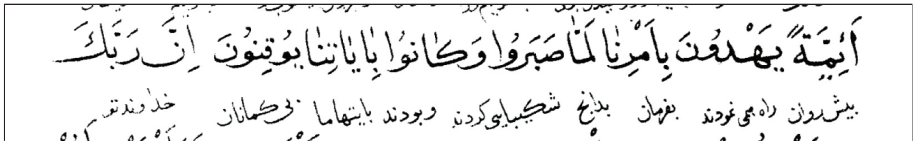 أَئِمَّةً يَهْدُونَ بِأَمْرِنَا لَمَّا صَبَرُوا وَكَانُوا بِآيَاتِنَا يُوقِنُونَ إِنَّ رَبَّكَ
پیش روان راه می نمودند بفرمان بدانچ شکیبایی کردند وبودند بایتهاما بی گمانان خداوندتو